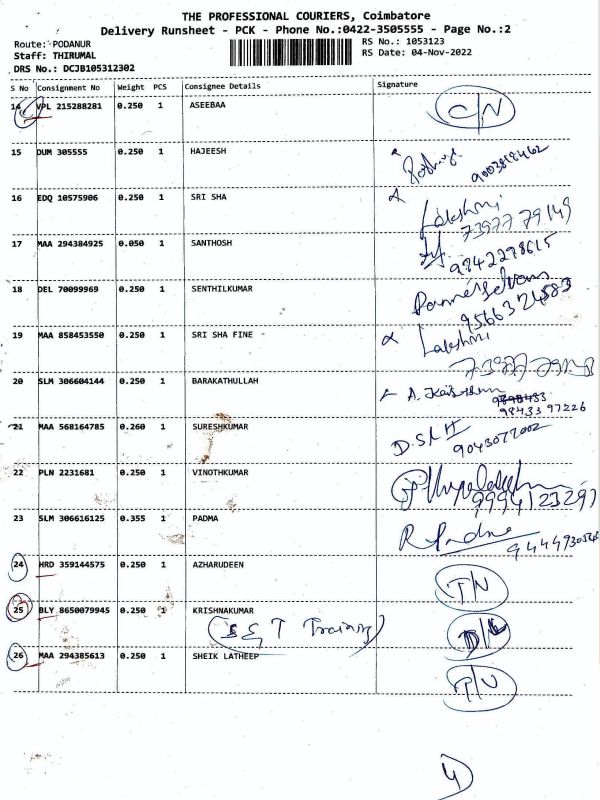 THE PROFESSIONAL COURIERS, Coimbatore
Delivery Runsheet - PCK - Phone No.:0422-3505555 - Page No.:2
Route: PODANUR
RS No.: 1053123
Staff: THIRUMAL
RS Date: 04-Nov-2022
DRS No.: DCJB105312302
S No Consignment No Weight PCS Consignee Details Signature
14 VPL 215288281 0.250 1 ASEEBAA C/N
15 DUM 305555 0.250 1 HAJEESH
16 EDQ 10575906 0.250 1 SRI SHA Lakshmi
73977 79149
17 MAA 294384925 0.050 1 SANTHOSH
9842278615
18 DEL 70099969 0.250 1 SENTHILKUMAR
19 MAA 858453550 0.250 1 SRI SHA FINE Lakshmi
20 SLM 306604144 0.250 1 BARAKATHULLAH
98433 97226
21 MAA 568164785 0.260 1 SURESHKUMAR
9043072002
22 PLN 2231681 0.250 1 VINOTHKUMAR
9994123297
23 SLM 306616125 0.355 1 PADMA R Padma
24 HRD 359144575 0.250 1 AZHARUDEEN
25 BLY 8650079945 0.250 1 KRISHNAKUMAR D/L
Training
26 MAA 294385613 0.250 1 SHEIK LATHEEP